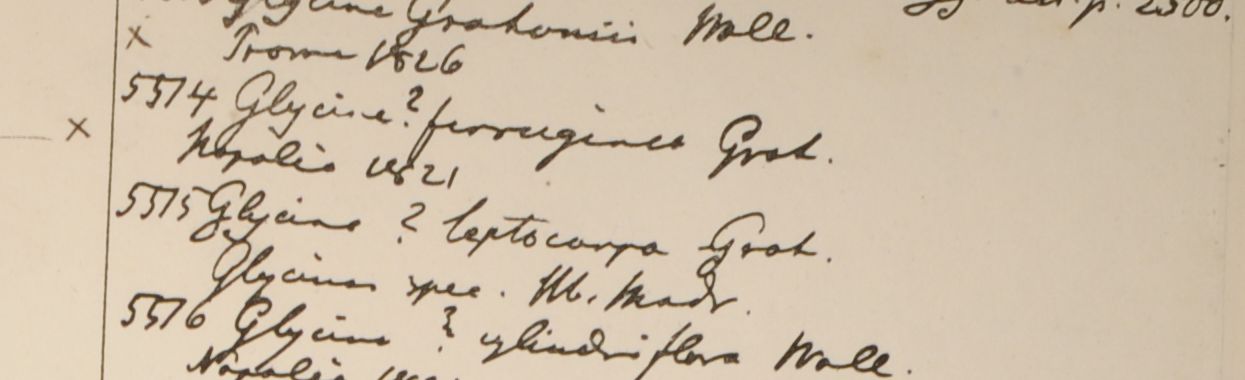 Glycine Grahamii Wall.
Prome 1826
5514 Glycine? ferruginea Grah.
Napalia 1821
5515 Glycine ? leptocarpa Grah.
Glycine spec. Hb. Madr.
5516 Glycine ? cylindriflora Wall.
Napalia